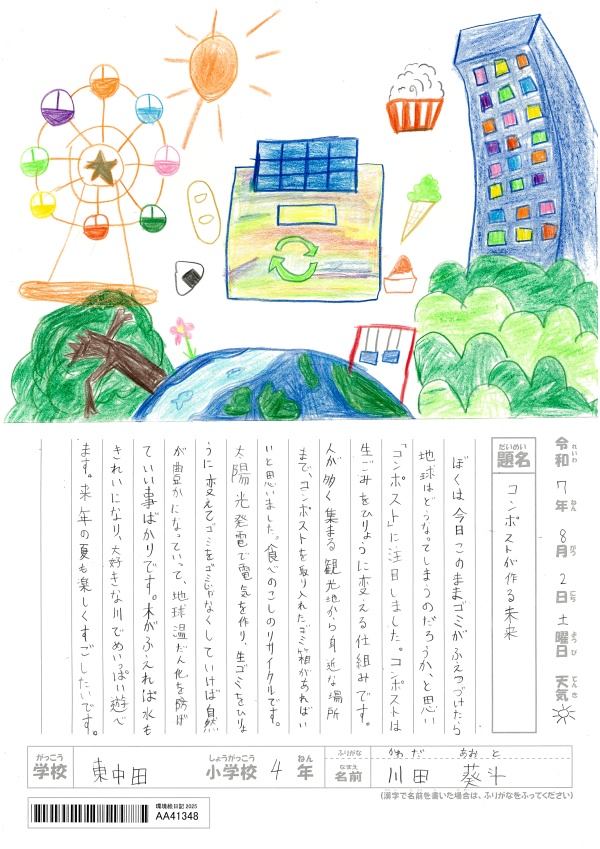 令和れいわ 7 年ねん 8 月がつ 2 日にち 土 曜日ようび 天気てんき
題名だいめい コンポストが作る未来
ぼくは今日このままゴミがふえつづけたら
地球はどうなってしまうのだろうか、と思い
「コンポスト」に注目しました。コンポストは
生ごみをひりょうに変える仕組みです。
人が多く集まる観光地から身近な場所
まで、コンポストを取り入れたゴミ箱があればい
いと思いました。食べのこしのリサイクルです。
太陽光発電で電気を作り、生ゴミをひりょ
うに変えてゴミをゴミじゃなくしていけば自然
が豊かになっていって、地球温だん化を防げ
ていい事ばかりです。木がふえれば水も
きれいになり、大好きな川でめいっぱい遊べ
ます。来年の夏も楽しくすごしたいです。
学校がっこう 東中田 小学校しょうがっこう 4 年ねん
ふりがな かわだ あおと
名前なまえ 川田 葵斗
(漢字で名前を書いた場合は、ふりがなをふってください)
環境絵日記2025
AA41348